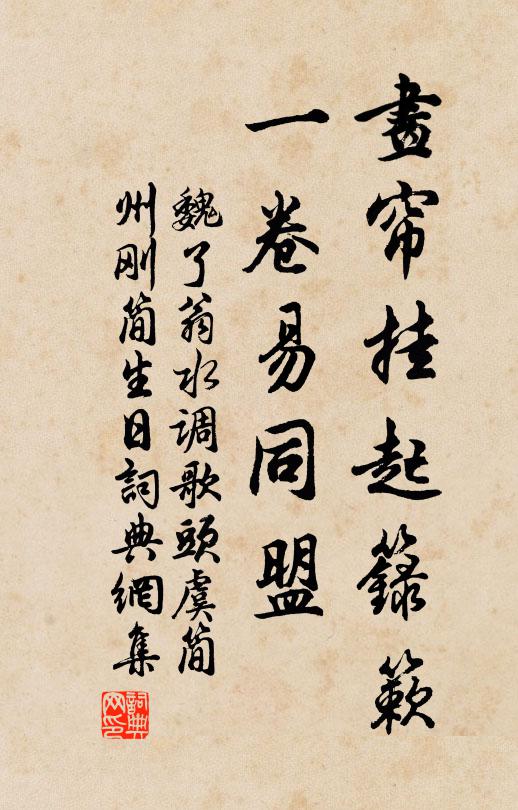 畫帘挂起籙簌
一卷易同盟
魏了翁水调歌頭虞简
州刚简生日詞典網集
詞典网印